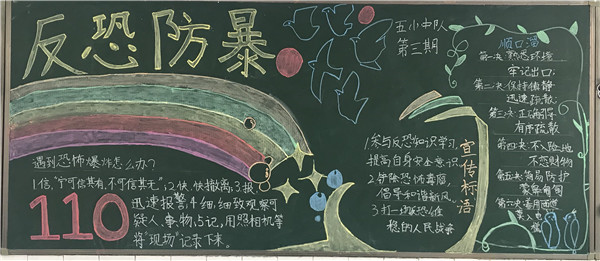 反恐防暴
五小中队
第三期
遇到恐怖爆炸怎么办?
1信,"宁可信其有,不可信其无",2快,快撤离;3报
迅速报警;4细,细致观察可
疑人、事、物;5记,用照相机等
将"现场"记录下来。
110
宣传标语
1参与反恐知识学习,
提高自身安全意识
2弹 恐怖毒瘤,
倡导和谐新风
3打一场反恐维
稳的人民战争
顺口溜
第一决:熟悉环境
牢记出口;
第二决:保持镇静
迅速疏散
第三决:正确引导
有序疏散
第四决:不入险地
不恋财物
第五决:简易防护
蒙鼻匍匐
第六决:善用通道
莫入电
梯